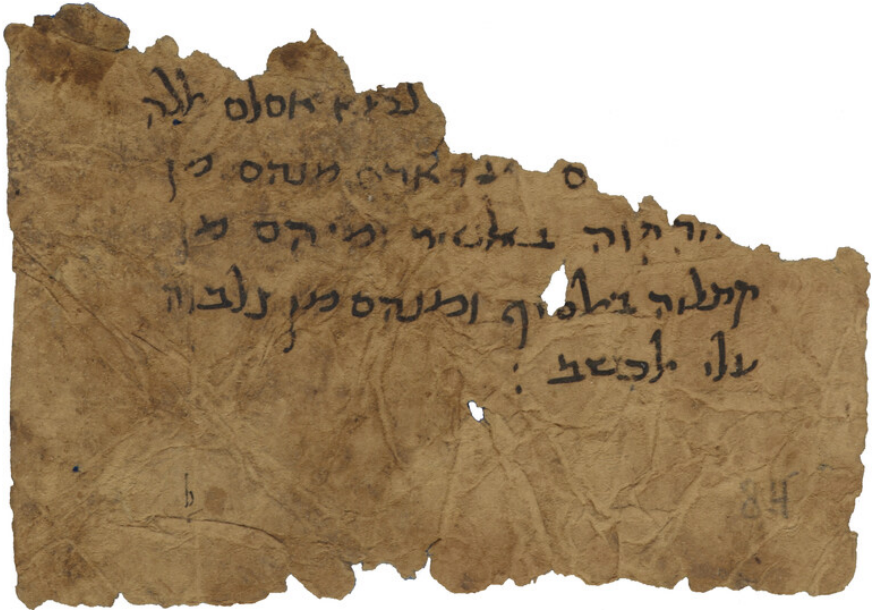 אסלם ללה
מנהם מן
חרקוה באלנאר ומנהם מן
קתלוה באלסיף ומנהם מן צלבוה
עלי אלכשב :